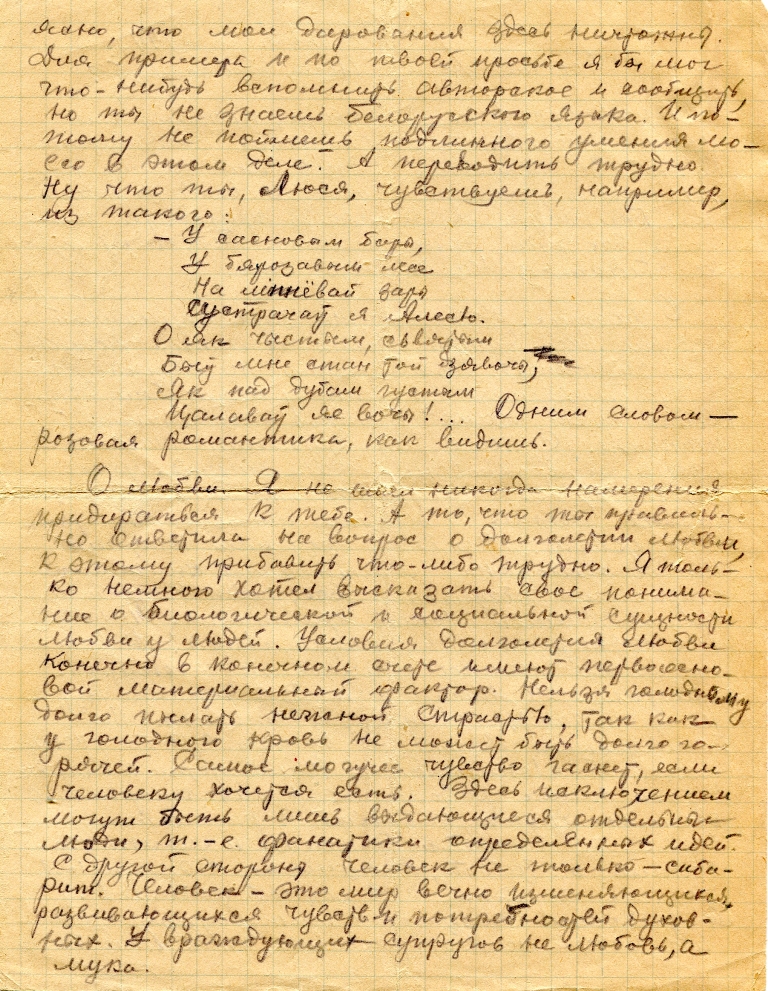 ясно, что мои дарования здесь ничтожны.
Для примера и по твоей просьбе я бы мог
что-нибудь вспомнить авторское и сообщить,
но ты не знаешь белорусского языка. И по-
тому не поймешь подлинного умения мо-
его в этом деле. А переводить трудно.
Ну что ты, Люся, чувствуешь, например,
из такого:
– У сасновам бары,
У бярозавым лесе
На жніўнай зары
Сустракаў я Алесю.
О як чыстым, сьвятым
Быў мне стан той дзявочы,
Як пад дубам густым
Цалаваў яе вочы!... Одним словом –
розовая романтика, как видишь.
О любви. Я не имел никогда намерения
придираться к тебе. А то, что ты правиль-
но ответила на вопрос о долголетии любви,
к этому прибавить что-либо трудно. Я толь-
ко немного хотел высказать свое понима-
ние о биологической и социальной сущности
любви у людей. Условия долголетия любви
конечно в конечном счете имеют первоосно-
вой материальный фактор. Нельзя голодному
долго пылать нежной страстью, так как
у голодного кровь не может быть долго го-
рячей. Самое могучее чувство гаснет, если
человеку хочется есть. Здесь исключением
могут быть лишь выдающиеся отдельные
люди, т.-е. фанатики определенных идей.
С другой стороны человек не только – сиба-
рит. Человек – это мир вечно изменяющихся,
развивающихся чувств и потребностей духов-
ных. У враждующих супругов не любовь, а
мука.